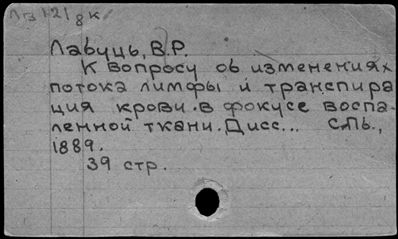 Лавуць, В.Р.
К вопросу об изменениях
потока лимфы и транспира
ция крови в фокусе воспа-
ленной ткани. Дисс... СПь.,
1889.
39 стр.